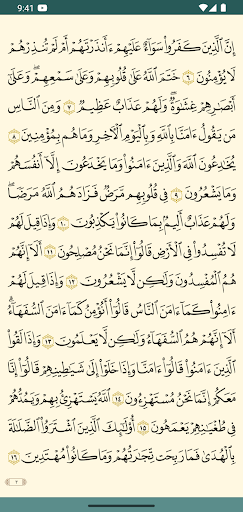 9:41
إِنَّ ٱلَّذِينَ كَفَرُوا۟ سَوَآءٌ عَلَيْهِمْ ءَأَنذَرْتَهُمْ أَمْ لَمْ تُنذِرْهُمْ
لَا يُؤْمِنُونَ ٦ خَتَمَ ٱللَّهُ عَلَىٰ قُلُوبِهِمْ وَعَلَىٰ سَمْعِهِمْ ۖ وَعَلَىٰٓ
أَبْصَٰرِهِمْ غِشَٰوَةٌ ۖ وَلَهُمْ عَذَابٌ عَظِيمٌ ٧ وَمِنَ ٱلنَّاسِ
مَن يَقُولُ ءَامَنَّا بِٱللَّهِ وَبِٱلْيَوْمِ ٱلْءَاخِرِ وَمَا هُم بِمُؤْمِنِينَ ٨
يُخَٰدِعُونَ ٱللَّهَ وَٱلَّذِينَ ءَامَنُوا۟ وَمَا يَخْدَعُونَ إِلَّآ أَنفُسَهُمْ
وَمَا يَشْعُرُونَ ٩ فِى قُلُوبِهِم مَّرَضٌ فَزَادَهُمُ ٱللَّهُ مَرَضًا ۖ
وَلَهُمْ عَذَابٌ أَلِيمٌۢ بِمَا كَانُوا۟ يَكْذِبُونَ ١٠ وَإِذَا قِيلَ لَهُمْ
لَا تُفْسِدُوا۟ فِى ٱلْأَرْضِ قَالُوٓا۟ إِنَّمَا نَحْنُ مُصْلِحُونَ ١١ أَلَآ إِنَّهُمْ
هُمُ ٱلْمُفْسِدُونَ وَلَٰكِن لَّا يَشْعُرُونَ ١٢ وَإِذَا قِيلَ لَهُمْ
ءَامِنُوا۟ كَمَآ ءَامَنَ ٱلنَّاسُ قَالُوٓا۟ أَنُؤْمِنُ كَمَآ ءَامَنَ ٱلسُّفَهَآءُ ۗ
أَلَآ إِنَّهُمْ هُمُ ٱلسُّفَهَآءُ وَلَٰكِن لَّا يَعْلَمُونَ ١٣ وَإِذَا لَقُوا۟
ٱلَّذِينَ ءَامَنُوا۟ قَالُوٓا۟ ءَامَنَّا وَإِذَا خَلَوْا۟ إِلَىٰ شَيَٰطِينِهِمْ قَالُوٓا۟ إِنَّا
مَعَكُمْ إِنَّمَا نَحْنُ مُسْتَهْزِءُونَ ١٤ ٱللَّهُ يَسْتَهْزِئُ بِهِمْ وَيَمُدُّهُمْ
فِى طُغْيَٰنِهِمْ يَعْمَهُونَ ١٥ أُو۟لَٰٓئِكَ ٱلَّذِينَ ٱشْتَرَوُا۟ ٱلضَّلَٰلَةَ
بِٱلْهُدَىٰ فَمَا رَبِحَت تِّجَٰرَتُهُمْ وَمَا كَانُوا۟ مُهْتَدِينَ ١٦
٣